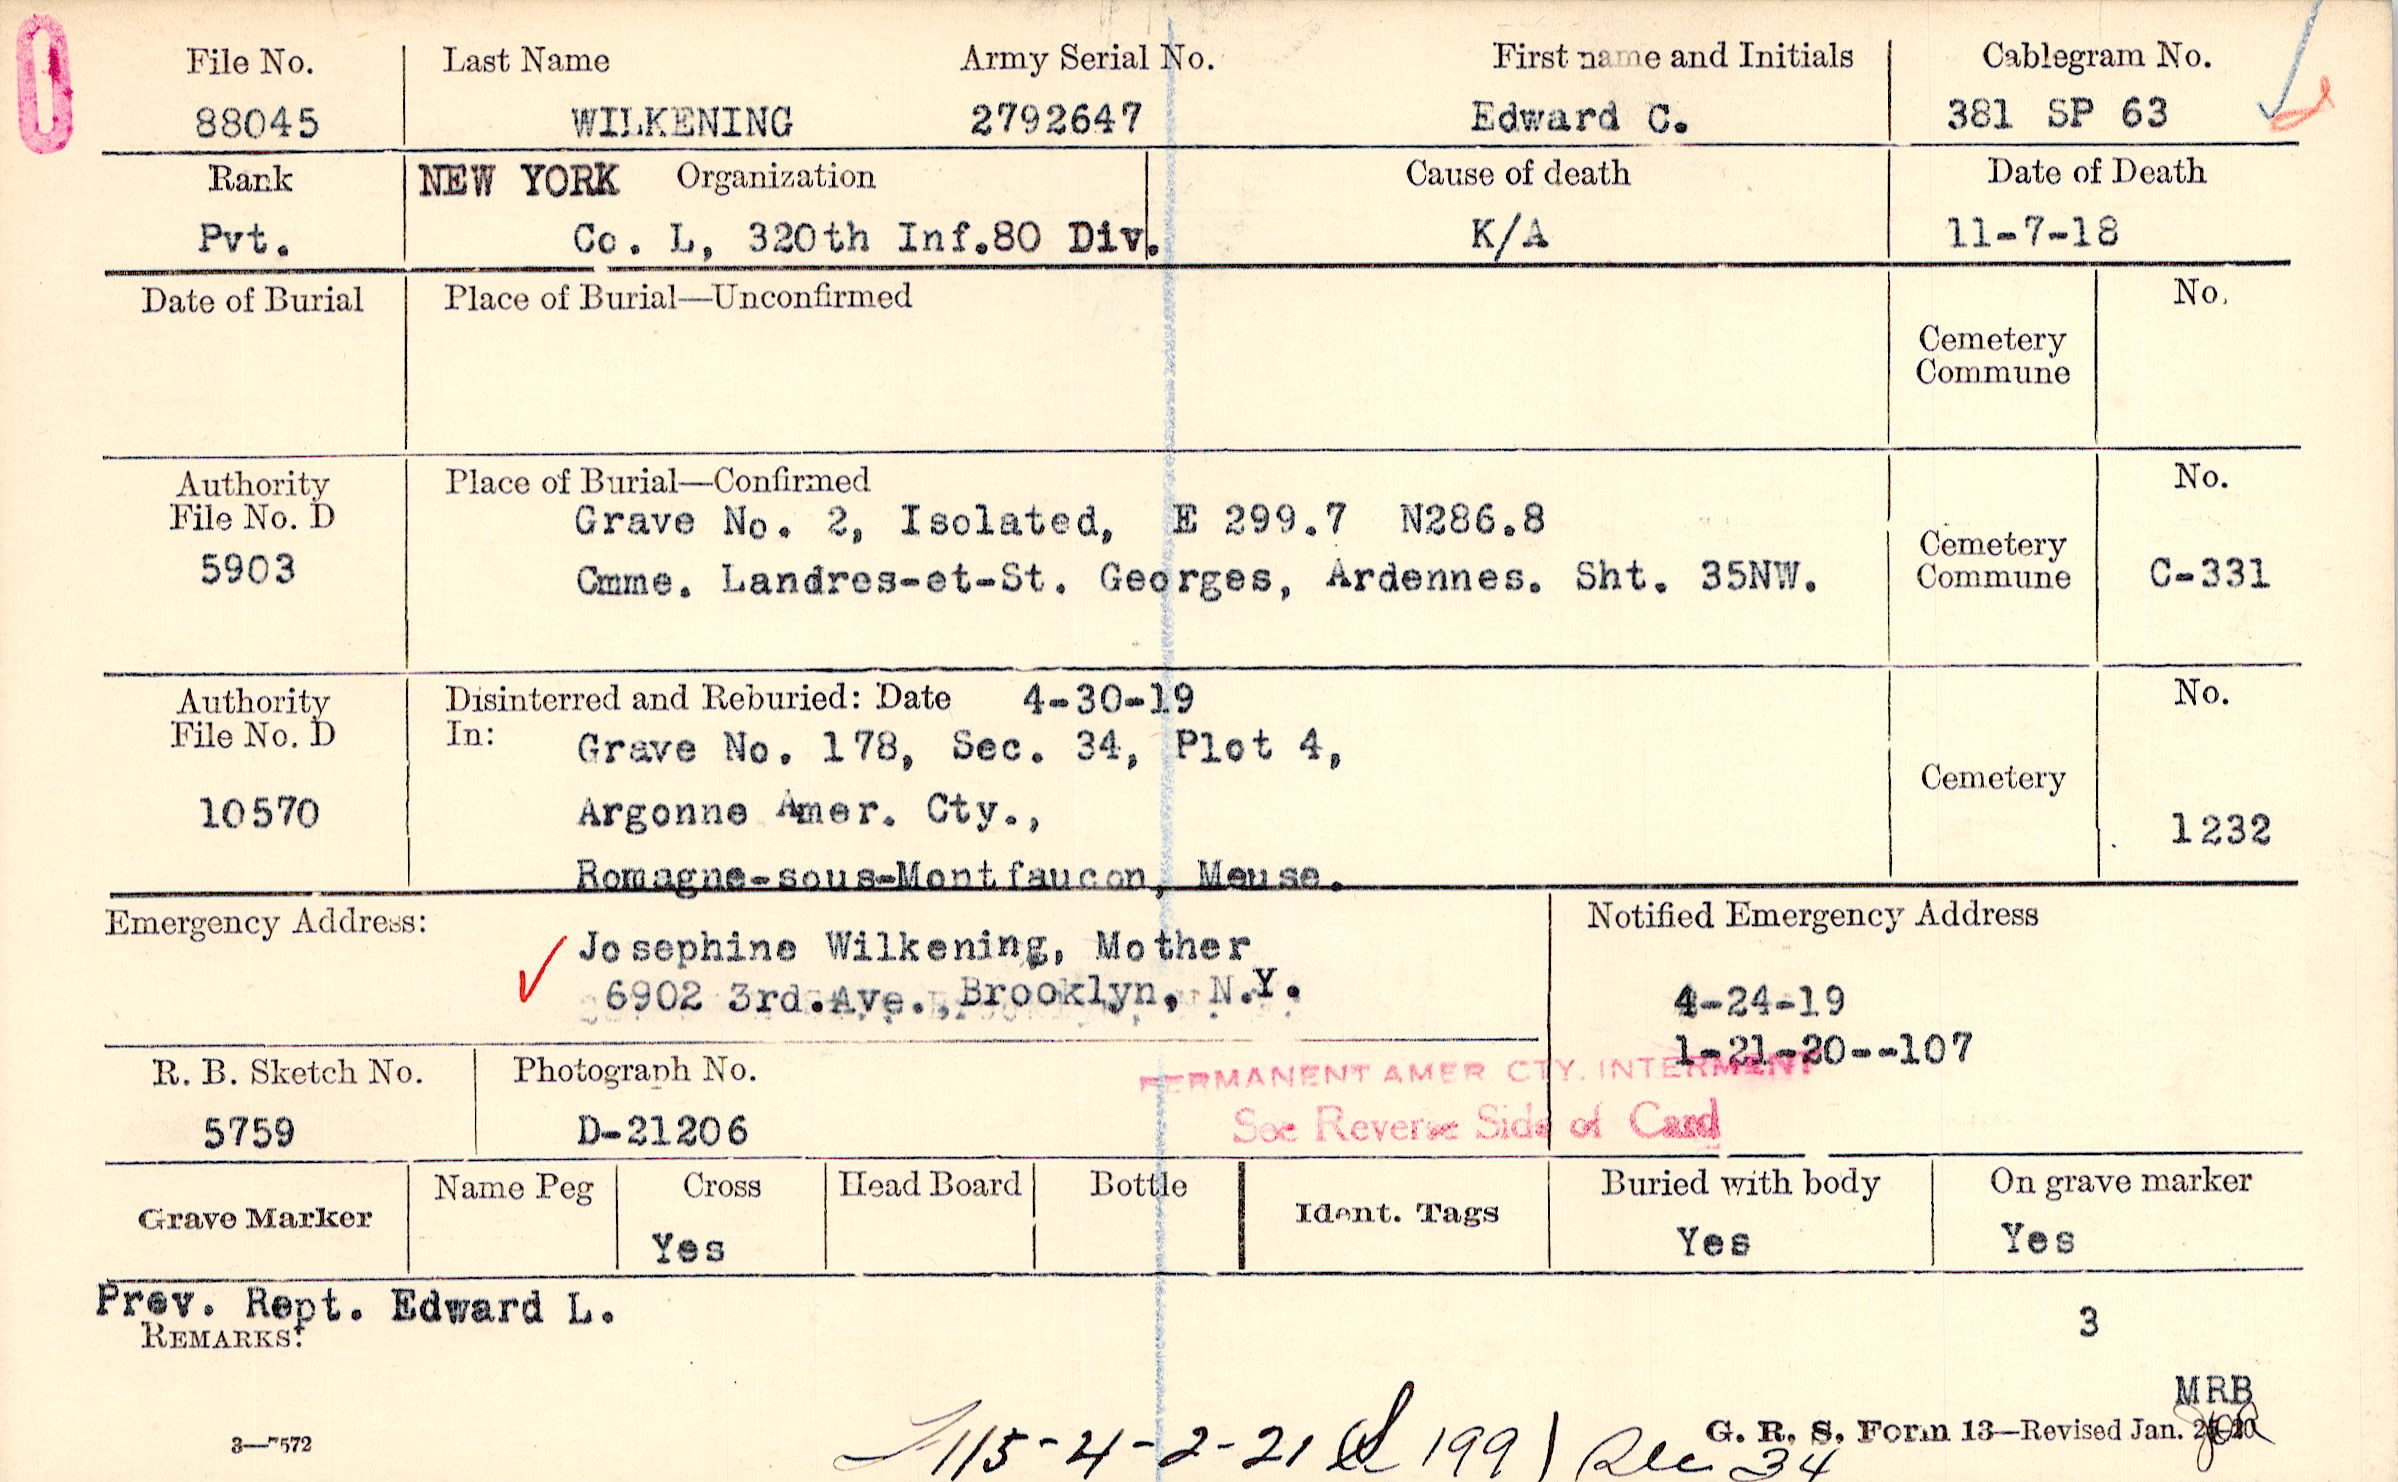 File No. Last Name Army Serial No. First name and Initials Cablegram No.
88045 WILKENING 2792647 Edward C. 381 SP 63
Rank NEW YORK Organization Cause of death Date of Death
Pvt. Co. L, 320th Inf.80 Div. K/A 11-7-18
Date of Burial Place of Burial—Unconfirmed No.
Cemetery
Commune
Authority Place of Burial—Confirmed No.
File No. D Grave No. 2, Isolated, E 299.7 N286.8
Cemetery
5903 Cmme. Landres-et-St. Georges, Ardennes. Sht. 35NW. Commune C-331
Authority Disinterred and Reburied: Date 4-30-19 No.
File No. D In: Grave No. 178, Sec. 34, Plot 4,
Cemetery
10570 Argonne Amer. Cty., 1232
Romagne-sous-Montfaucon, Meuse.
Emergency Address: Notified Emergency Address
Josephine Wilkening, Mother
6902 3rd.Ave., Brooklyn, N.Y. 4-24-19
1-21-20--107
R. B. Sketch No. Photograph No. PERMANENT AMER CTY. INTERMENT
5759 D-21206 See Reverse Side of Card
Grave Marker Name Peg Cross Head Board Bottle Ident. Tags Buried with body On grave marker
Yes Yes Yes
Prev. Rept. Edward L. 3
REMARKS:
MRB
3—7572 115-4-2-21 199) Sec 34 G. R. S. Form 13—Revised Jan.